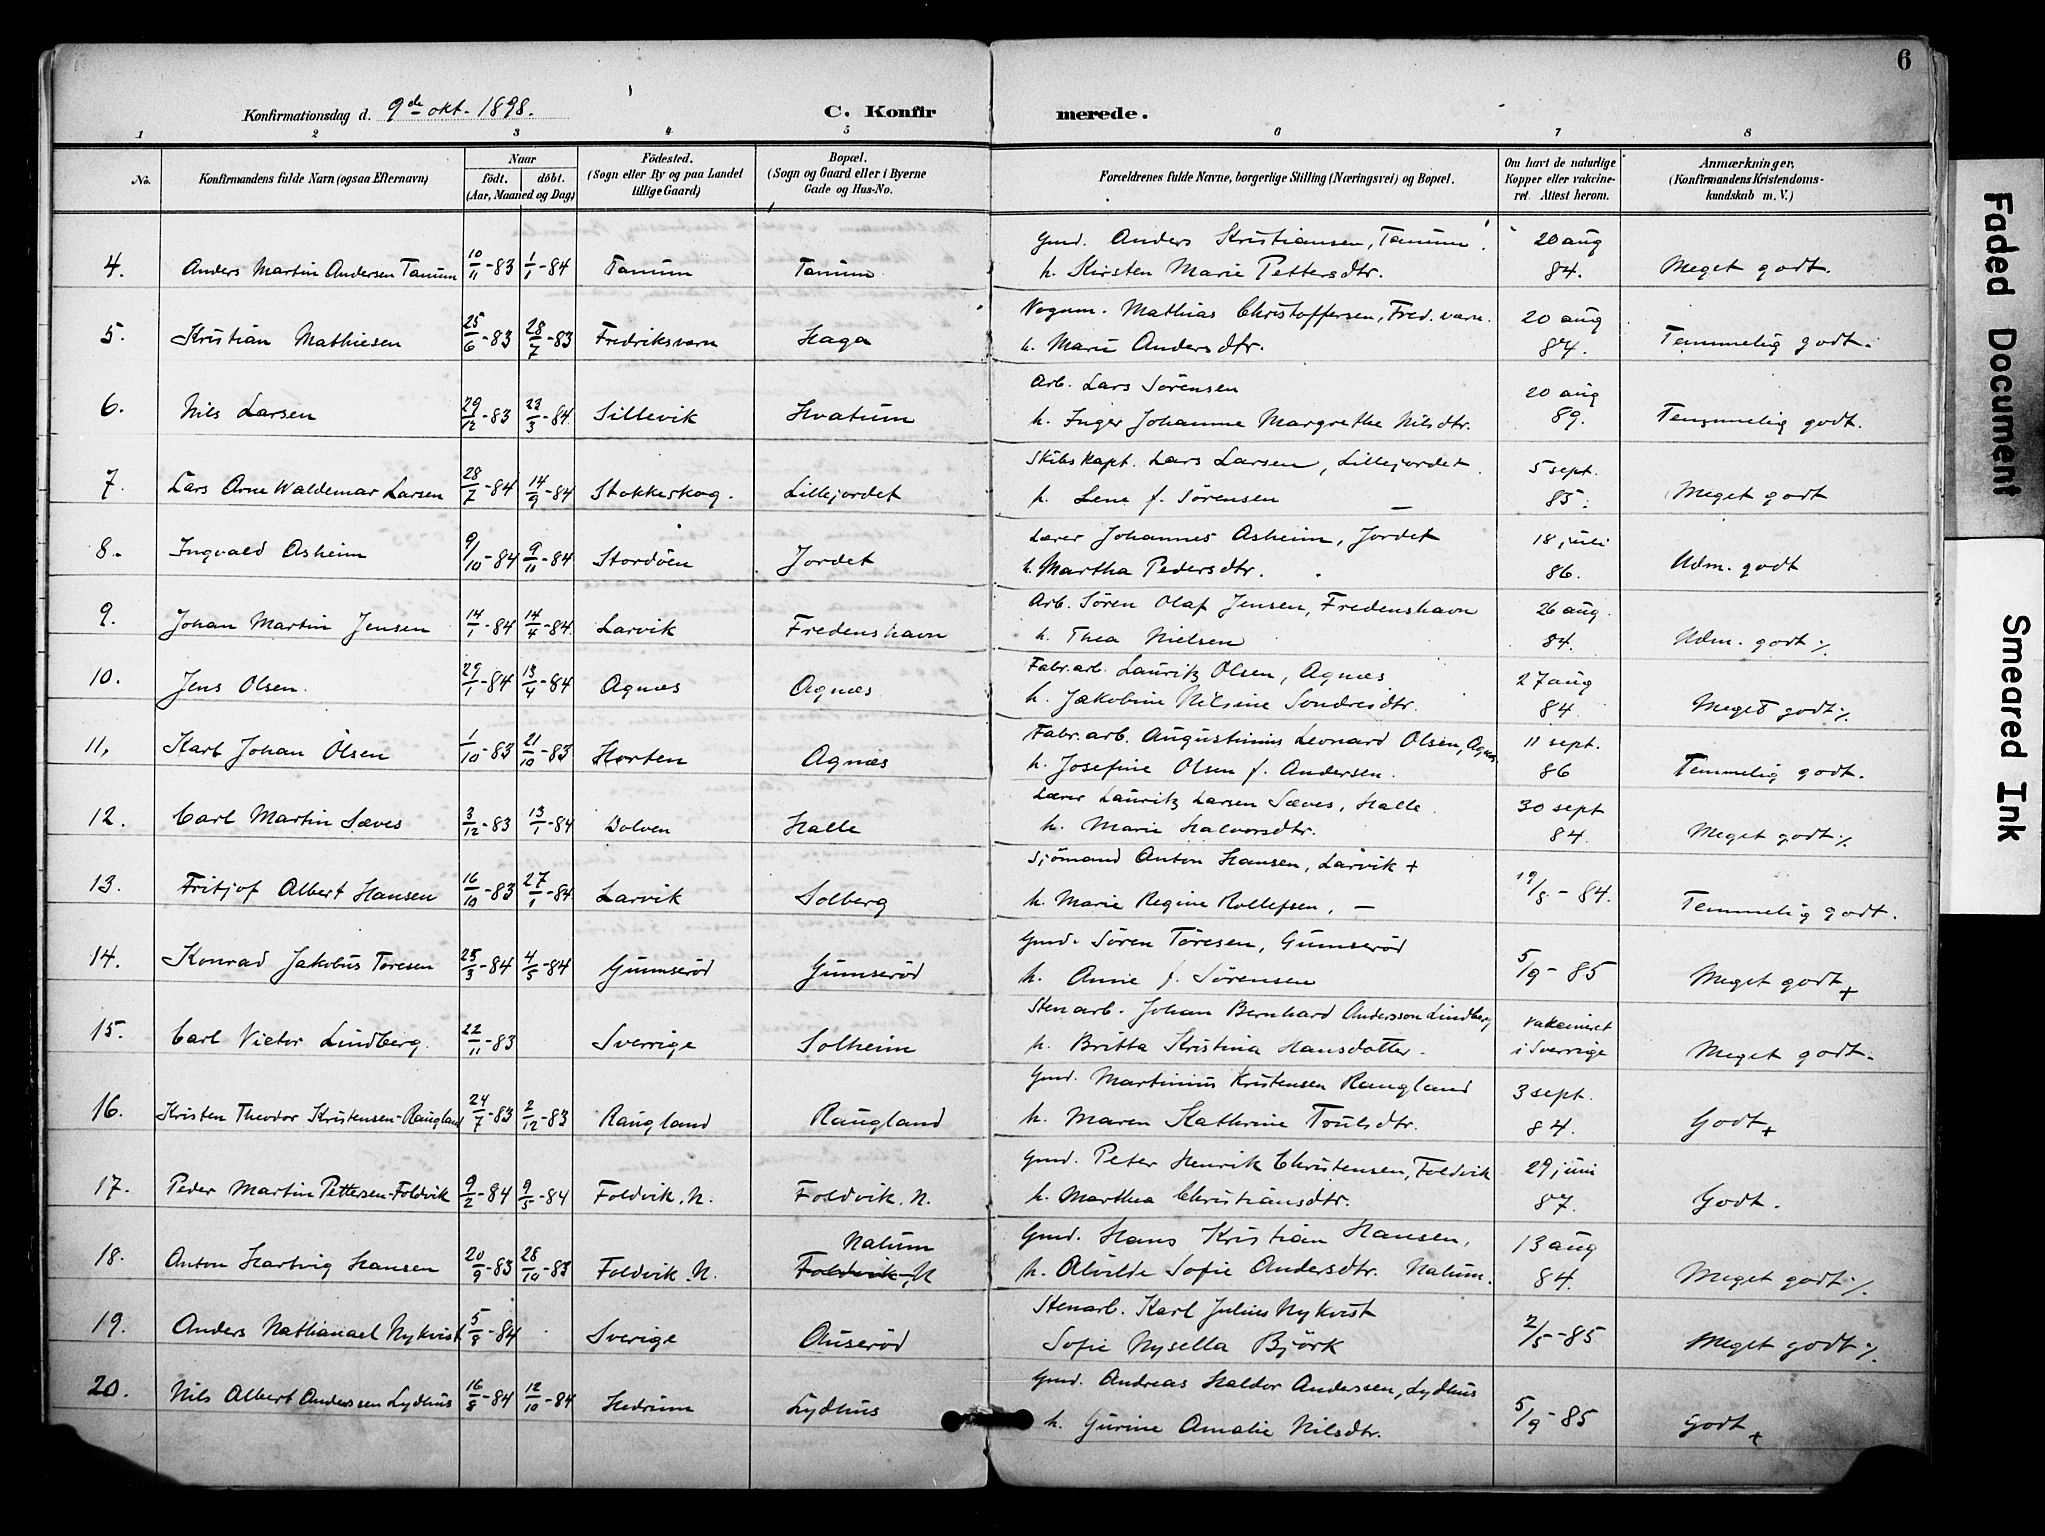 6
Konfirmationsdag d. 9de okt. 1898. C. Konfirmerede.
1 2 3 4 5 6 7 8
No. Konfirmandens fulde Navn (ogsaa Efternavn) Naar født. døbt. (Aar, Maaned og Dag) Fødested. (Sogn eller By og paa Landet tillige Gaard) Bopæl. (Sogn og Gaard eller i Byerne Gade og Hus-No. Forældrenes fulde Navne, borgerlige Stilling (Næringsvei) og Bopæl. Om havt de naturlige Kopper eller vakcineret. Attest herom. Anmærkninger, (Konfirmandens Kristendomskundskab m. V.)
4. Anders Martin Andersen Tanum 10/11-83 1/1-84 Tanum Tanum Gmd. Anders Kristiansen, Tanum. 20 aug
h. Kirsten Marie Pettersdtr. 84. Meget godt.
5. Kristian Mathiesen 25/6-83 28/7-83 Fredriksværn Haga Vognm. Mathias Christoffersen, Fred.værn. 20 aug
h. Marie Andersdtr. 84. Temmelig godt.
6. Nils Larsen 29/12-83 23/3-84 Sillevik Hvatum Arb. Lars Sørensen 20 aug
h. Inger Johanne Margrethe Nilsdtr. 89. Temmelig godt.
7. Lars Arne Waldemar Larsen 28/7-84 14/9-84 Stokkeskog. Lillejordet Skibskapt. Lars Larsen, Lillejordet. 5 sept.
h. Lene f. Sørensen 85. Meget godt
8. Ingvald Asheim 9/10-84 9/11-84 Stordöen Jordet Lærer Johannes Asheim, Jordet 18 juli
h. Martha Pedersdtr. 86. Udm. godt
9. Johan Martin Jensen 14/1-84 14/4-84. Larvik Fredenshavn Arb. Søren Olaf Jensen, Fredenshavn 26 aug.
h. Thea Nielsen 84. Udm. godt ./.
10. Jens Olsen. 29/1-84 13/4-84 Agnæs Agnæs Fabr.arb. Lauritz Olsen, Agnæs. 27 aug
h. Jakobine Nilsine Sondresdtr. 84 Meget godt ./.
11. Karl Johan Olsen 1/10-83 21/10-83 Horten Agnæs Fabr.arb. Augustinius Leonard Olsen, Agnæs 11 sept.
h. Josefine Olsen f. Andersen. 86 Temmelig godt.
12. Carl Martin Sæves 3/12-83 13/1-84 Dolven Halle Lærer Lauritz Larsen Sæves, Halle. 30 sept
h. Marie Halvorsdtr. 84. Meget godt ./.
13. Fritjof Albert Hansen 16/10-83 27/1-84 Larvik Solberg Sjømand Anton Hansen, Larvik +
h. Marie Regine Rollefsen, — 19/8-84. Temmelig godt.
14. Konrad Jakobus Toresen 25/3-84 4/5-84 Gumserød Gumserød Gmd. Søren Toresen, Gumserød
h. Anne f. Sørensen 5/9-85 Meget godt +
15. Carl Victor Lindberg. 22/11-83 Sverrige Solheim Stenarb. Johan Bernhard Andersson Lindberg vakcineret
h. Britta Kristina Hansdotter. i Sverrige Meget godt.
16. Kristen Theodor Kristensen-Raugland 24/7-83 2/12-83 Raugland Raugland Gmd. Martinius Kristensen Raugland 3 sept.
h. Maren Kathrine Toulsdtr. 84. Godt +
17. Peder Martin Pettersen-Foldvik 9/2-84 9/5-84 Foldvik. N. Foldvik. N. Gmd. Peter Henrik Christensen, Foldvik 29 juni
h. Marthea Christiansdtr. 87. Godt.
18. Anton Hartvig Hansen 20/9-83 28/10-83 Foldvik. N. Nalum Foldvik, N Gmd. Hans Kristian Hansen, 13 aug
h. Alvilde Sofie Andersdtr. Nalum. 84. Meget godt ./.
19. Anders Nathanael Nykvist 5/8-84 Sverige Auserød Stenarb. Karl Julius Nykvist
Sofie Nysella Björk 2/5-85 Meget godt ./.
20. Nils Albert Anderssen Lydhus 16/8-84 12/10-84 Hedrum Lydhus Gmd. Andreas Haldor Anderssen, Lydhus
h. Gurine Amalie Nilsdtr. 5/9-85 Godt +
Faded Document
Smeared Ink